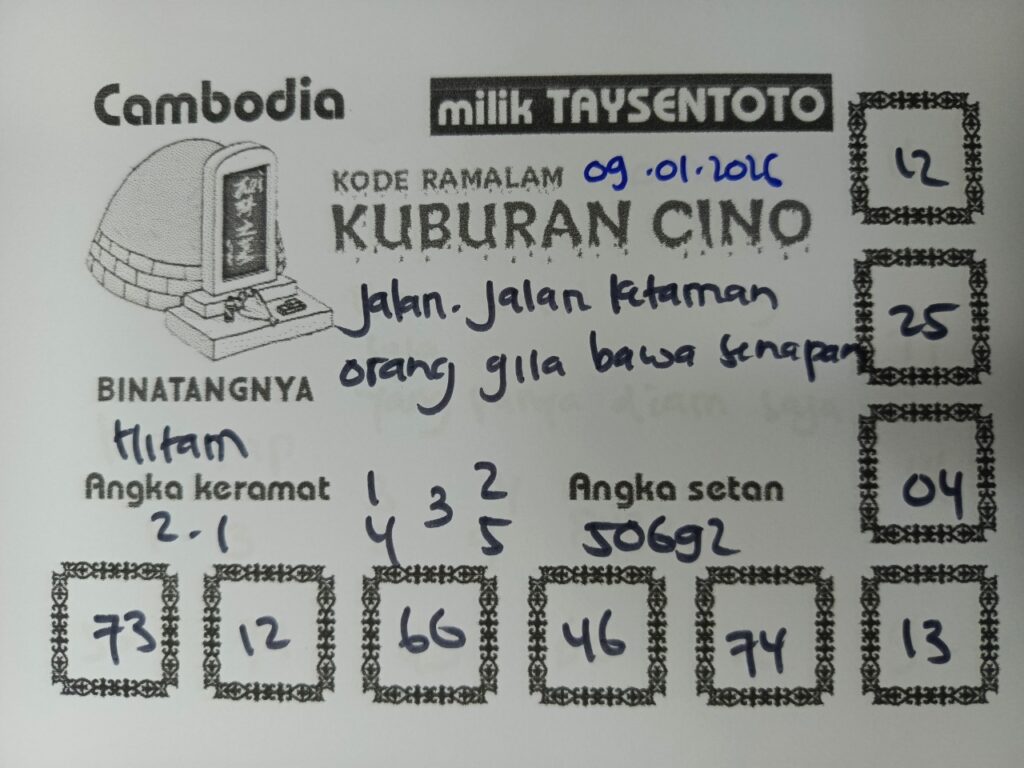 Cambodia
milik TAYSENTOTO
KODE RAMALAM 09.01.2026
KUBURAN CINO
Jalan. Jalan ketaman
orang gila bawa senapan
BINATANGNYA
Hitam
Angka keramat
2.1
1 2
3
4 5
Angka setan
50692
12
25
04
73 12 66 46 74 13